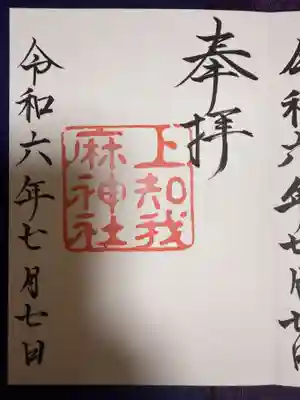 奉拝
上知我
麻神社
令和六年七月七日
令和六年七月七日